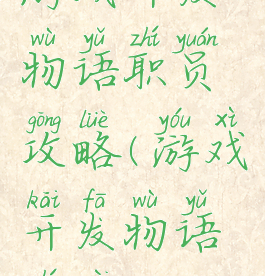 wù yǔ zhí yuán
物语职员
gōng lüè yóu xì
攻略(游戏
kāi fā wù yǔ
开发物语